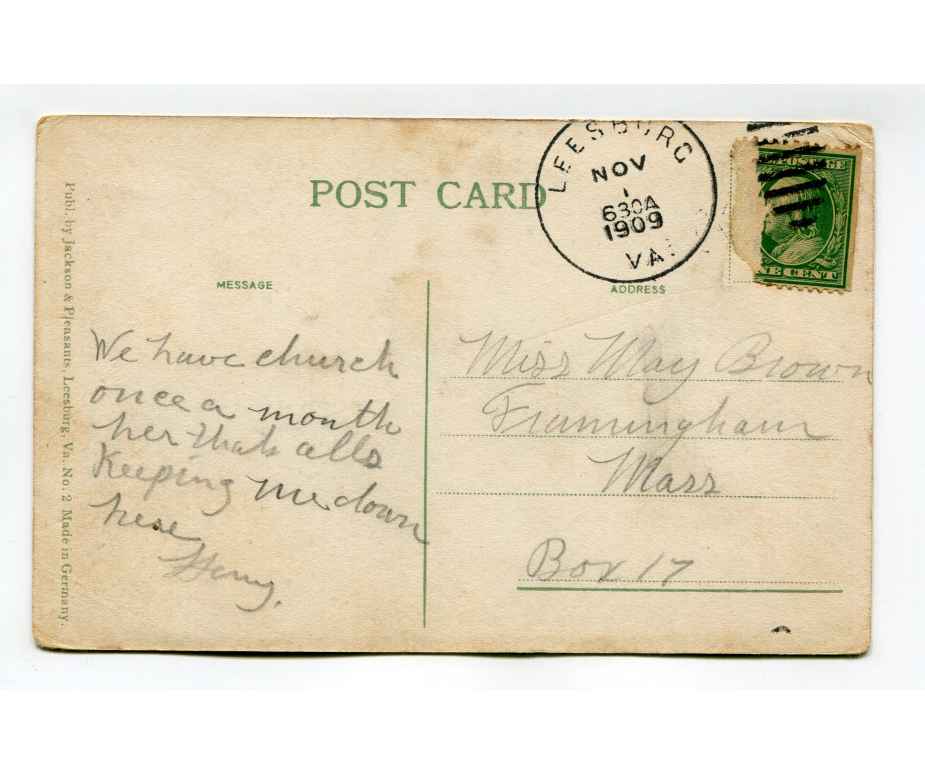 POST CARD
LEESBURG
NOV
1
630A
1909
VA.
POSTAGE
ONE CENT
MESSAGE
We have church
once a month
her thats alls
Keeping me down
here
Henry.
ADDRESS
Miss May Brown
Framingham
Mass
Box 17
Publ. by Jackson & Pleasants, Leesburg, Va. No. 2 Made in Germany.